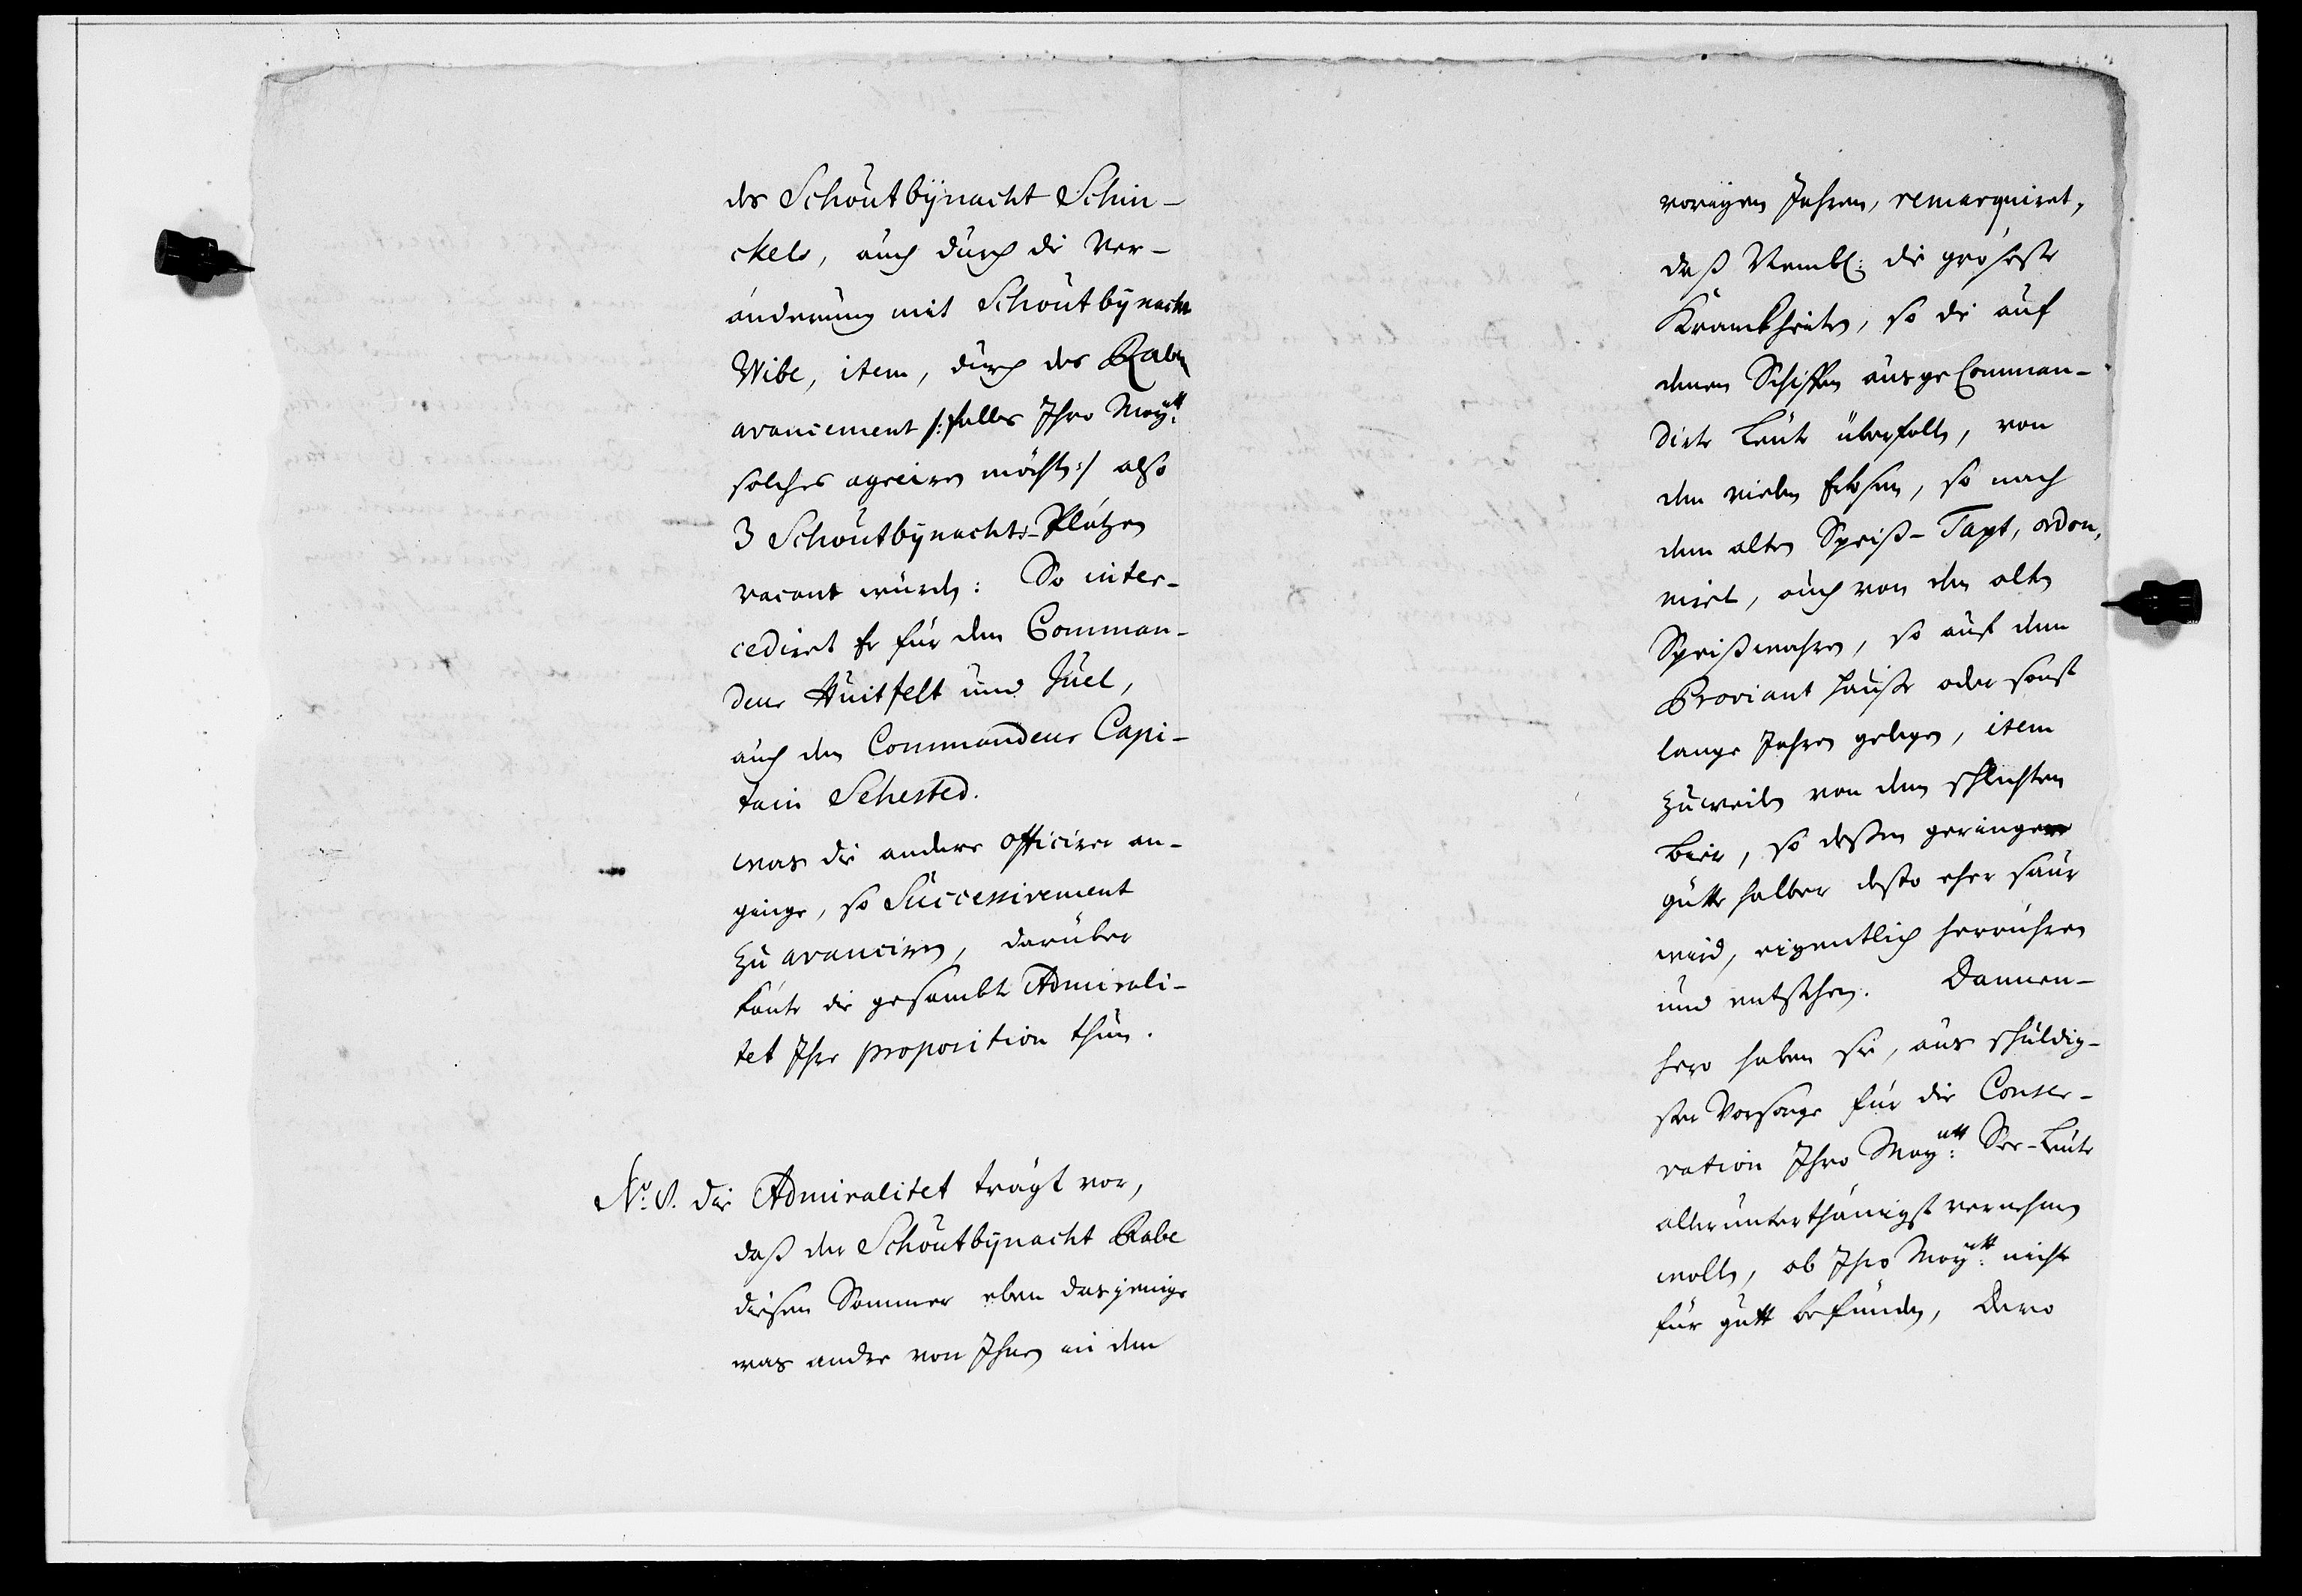 des Schoutbynacht Schin-
ckels, auch durch die Ver-
änderung mit Schoutbynacht
Wibe, item, durch des Raben
avancement /: falls Ihro Maytt:
solches agreiren möchte :/ also
3 Schoutbynachts-Plätzen
vacant würden: So inter-
cediret Er für den Comman-
deur Huitfelt und Juel,
auch den Commandeur Capi-
tain Sehested.
was die andere officirer an-
ginge, so Successivement
zu avanciren, darüber
könte die gesambte Admirali-
tet Ihre proposition thun.
No. 8. die Admiralitet trägt vor,
daß der Schoutbynacht Rabe
diesen Sommer eben dasjenige
was andre von Ihnen in den
vorigen Jahren, remarquiret,
daß Nembl: die gröseste
Kranckheiten, so die auf
denen Schiffen ausge Comman-
dirte Leute überfallen, von
den vielen Erbsen, so nach
dem alten Speiß-Taxt, ordon,
niret, auch von den alten
Speißwahren, so auf dem
Proviant Hause oder sonst
lange Jahren gelegen, item
zuweilen von dem schlechten
Bier, so deßen geringen
gütte halber desto eher saur
wird, eigentlich herrühren
und entstehen. Dannen-
hero haben sie, aus schuldig-
ster Vorsorge für die Conser-
vation Ihro Maytt: See-Leute
allerunterthänigst vernehmen
wollen, ob Ihro Maytt: nicht
für gutt befunden, Dero